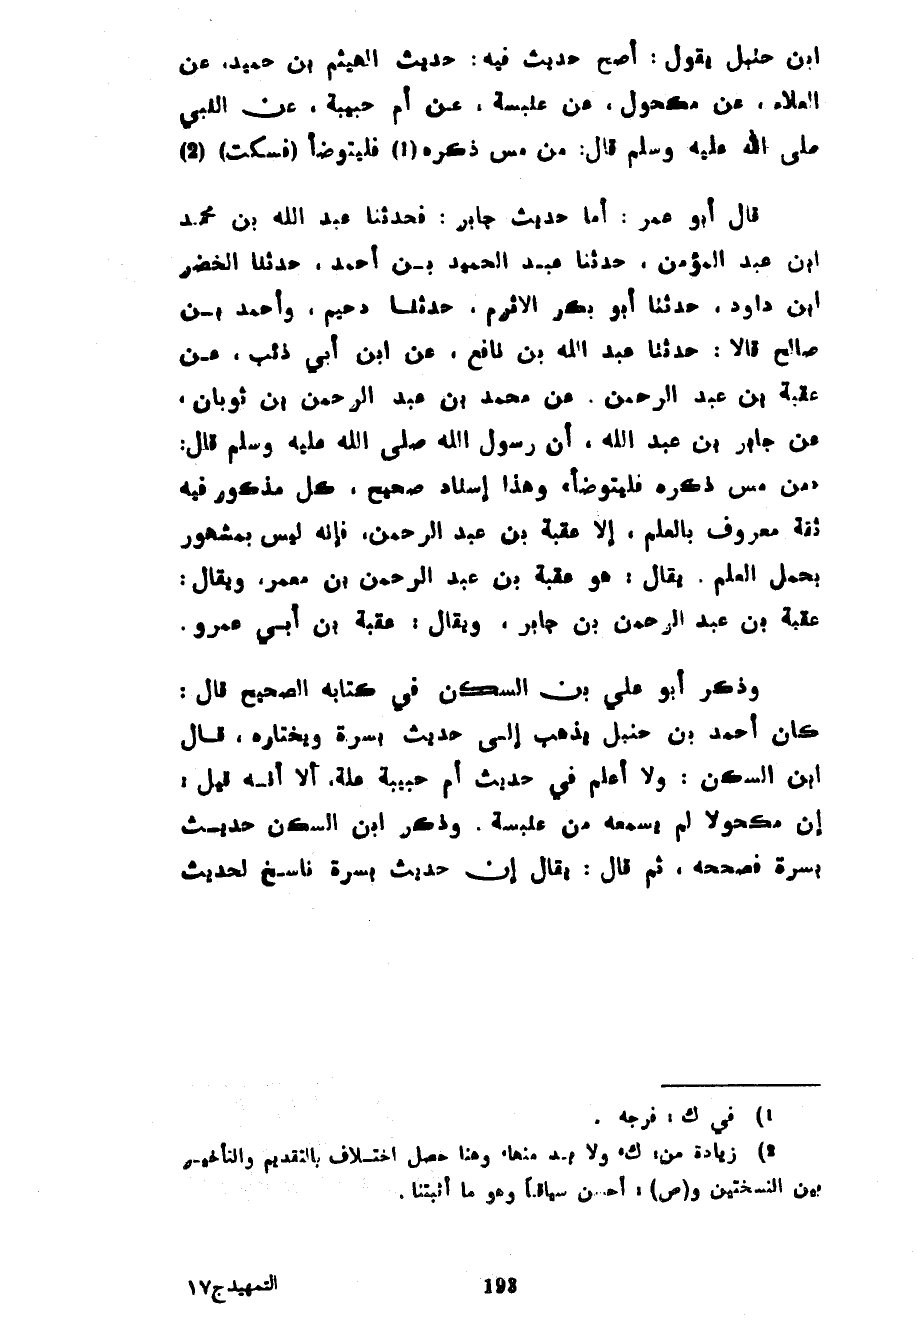 ابن حنبل يقول : أصح حديث فيه : حديث الهيثم بن حميد، عن
العلاء ، عن مكحول ، عن عنبسة ، عن أم حبيبة ، عن النبي
صلى الله عليه وسلم قال: من مس ذكره (1) فليتوضأ (فسكت) (2)
قال أبو عمر : أما حديث جابر : فحدثنا عبد الله بن محمد
ابن عبد المؤمن ، حدثنا عبد الحميد بن أحمد ، حدثنا الخضر
ابن داود ، حدثنا أبو بكر الاثرم ، حدثنا دحيم ، وأحمد بن
صالح قالا : حدثنا عبد الله بن نافع ، عن ابن أبي ذئب ، عن
عقبة بن عبد الرحمن . عن محمد بن عبد الرحمن بن ثوبان ،
عن جابر بن عبد الله ، أن رسول الله صلى الله عليه وسلم قال:
«من مس ذكره فليتوضأ» وهذا إسناد صحيح ، كل مذكور فيه
ثقة معروف بالعلم ، إلا عقبة بن عبد الرحمن، فإنه ليس بمشهور
بحمل العلم . يقال : هو عقبة بن عبد الرحمن بن معمر، ويقال :
عقبة بن عبد الرحمن بن جابر ، ويقال : عقبة بن أبي عمرو .
وذكر أبو علي بن السكن في كتابه الصحيح قال :
كان أحمد بن حنبل يذهب إلى حديث بسرة ويختاره ، قال
ابن السكن : ولا أعلم في حديث أم حبيبة علة، ألا أنه قيل :
إن مكحولا لم يسمعه من عنبسة . وذكر ابن السكن حديث
بسرة فصححه ، ثم قال : يقال إن حديث بسرة ناسخ لحديث
1) في ك : فرجه .
2) زيادة من: ك، ولا بد منها، وهنا حصل اختلاف بالتقديم والتأخير
بين النسختين و(ص) : أحسن سياقاً وهو ما أثبتنا .
193
التمهيد ج١٧